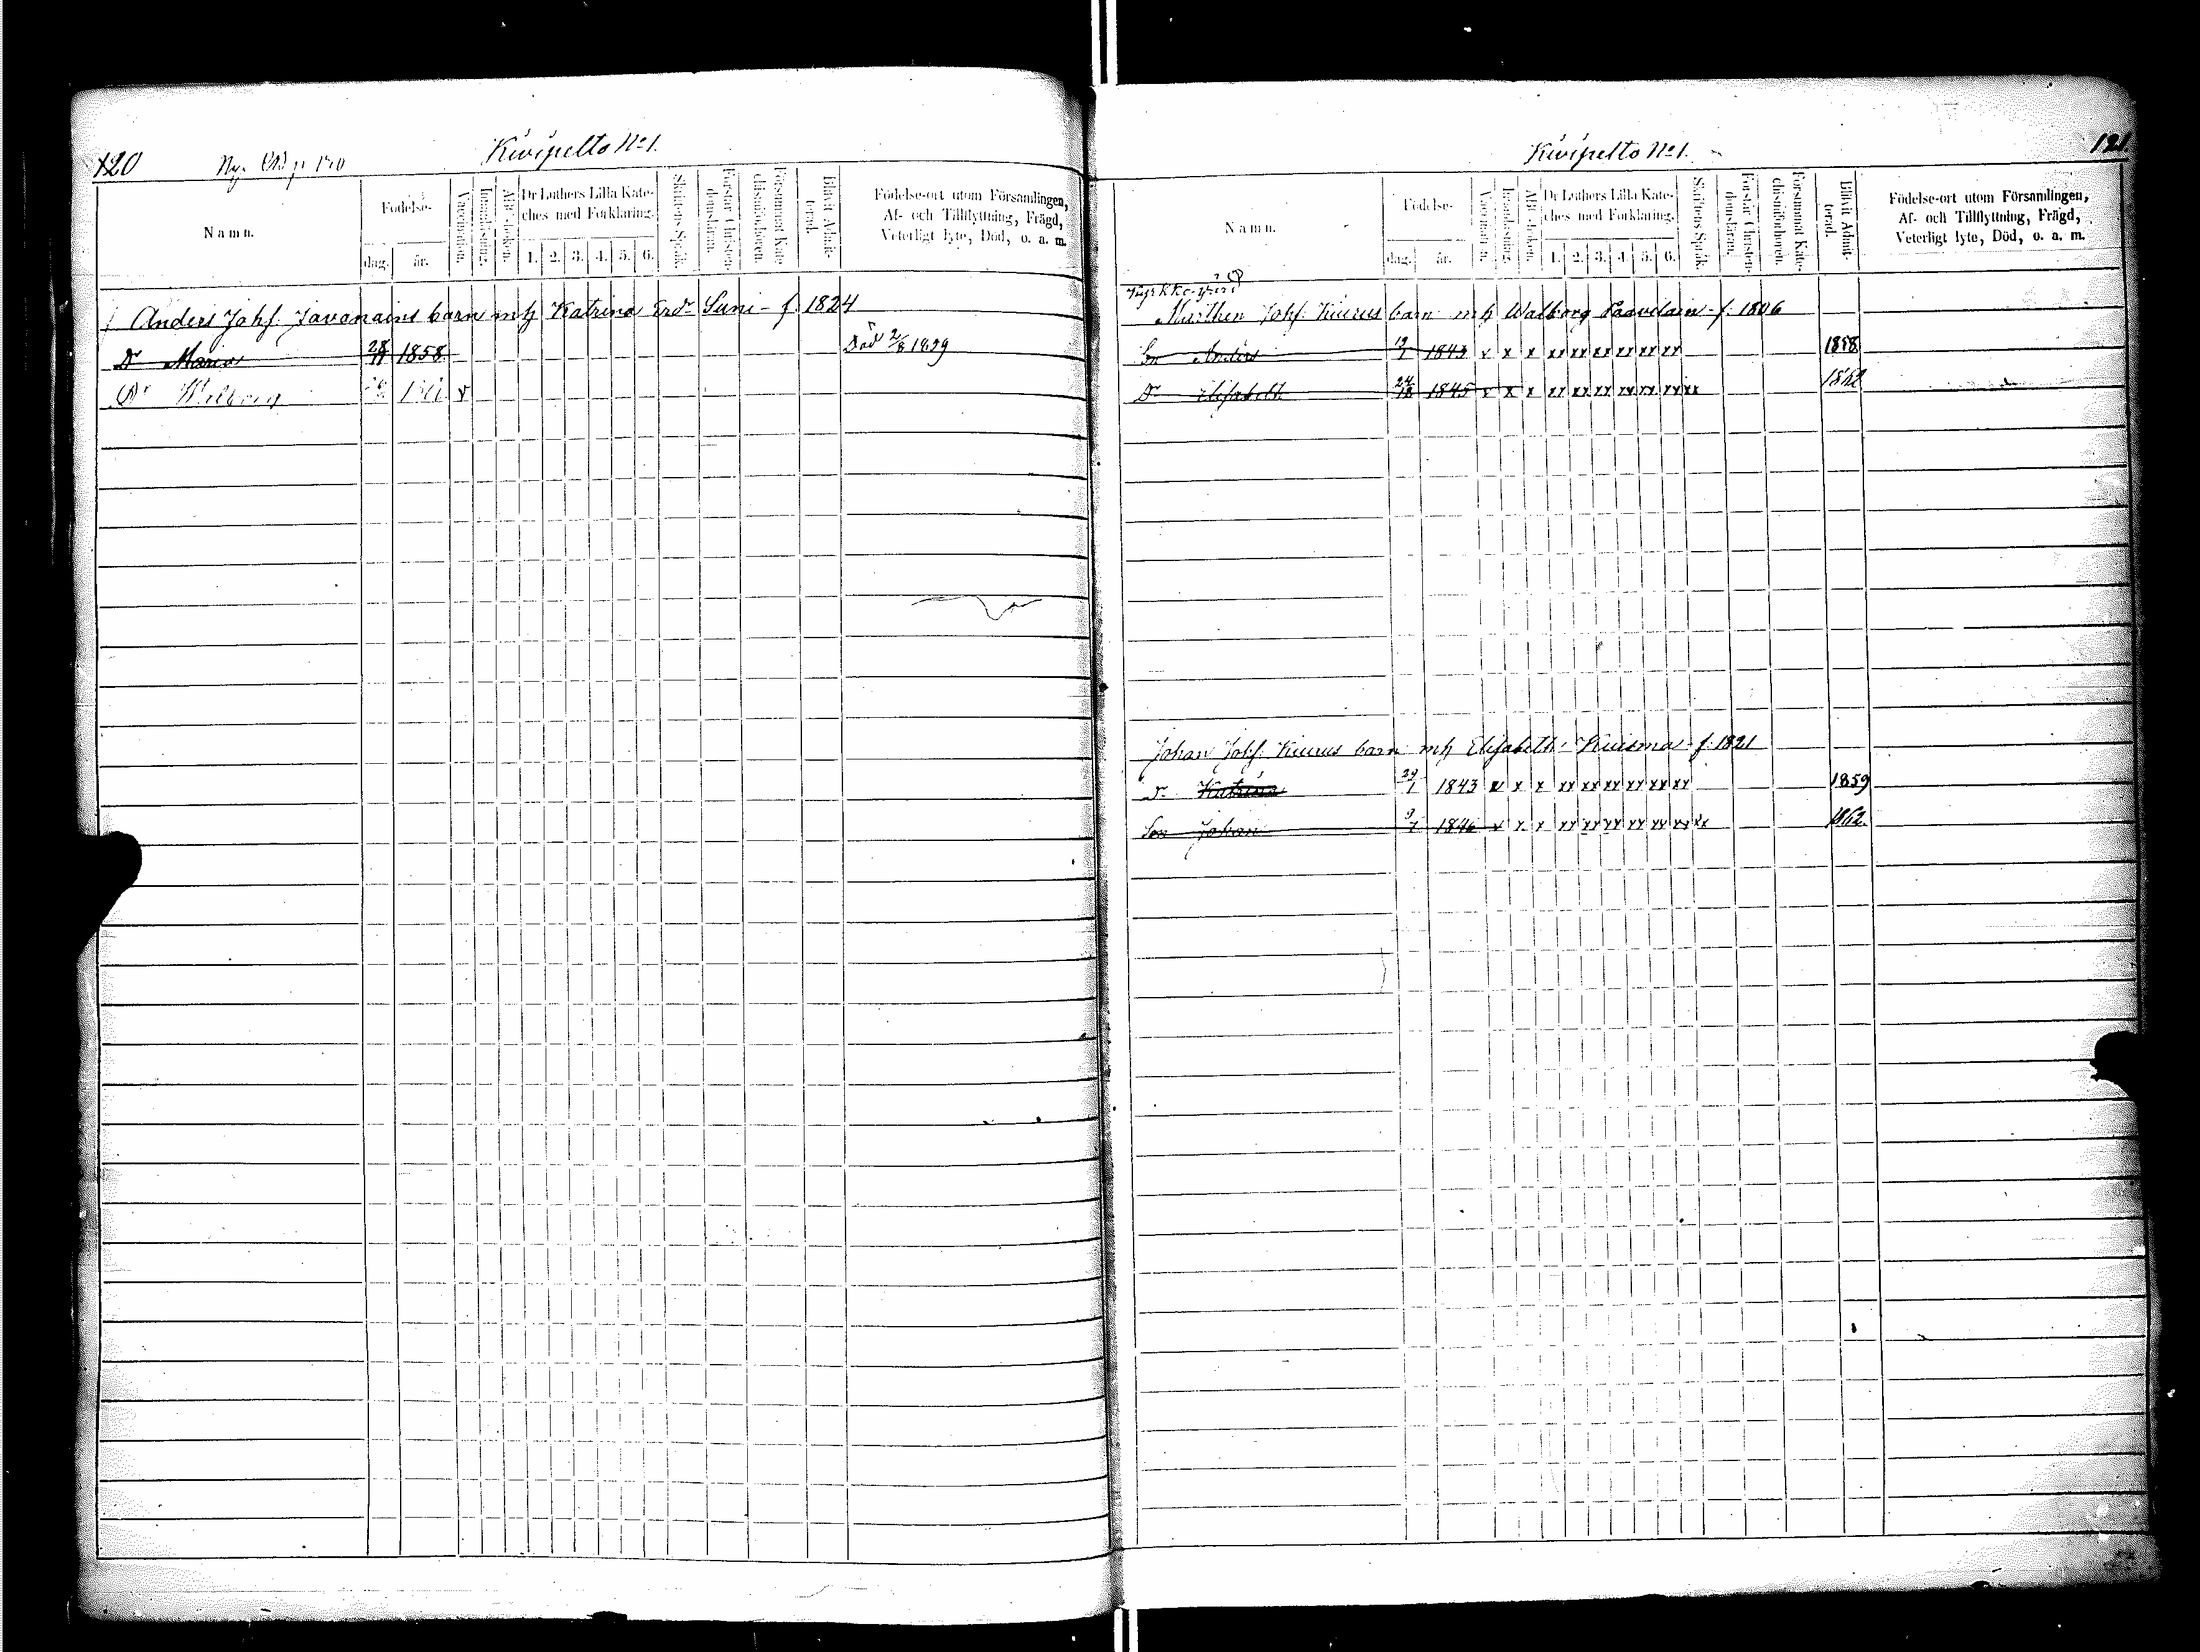 120
Kivipelto No 1.
Namn.
Födelse-
dag.
år.
Vaccineradt.
Innanläsning.
Abc-boken.
Dr Luthers Lilla Kate-
ches med Förklaring.
1. 2. 3. 4. 5. 6.
Skriftens Språk.
Förstår Christen-
domsläran.
Försummat Kate-
chismiförhören.
Blifvit Admit-
terad.
Födelse-ort utom Församlingen,
Af- och Tillflyttning, Frägd,
Veterligt lyte, Död, o. a. m.
Anders Johs. Javanains barn mh Katrina Suni - f. 1824
Dr Maria 28/11 1858 Död 2/8 1859
Dr Walborg v
Kivipelto No 1.
121.
Namn.
Födelse-
dag.
år.
Innanläsning.
Abc-boken.
Dr Luthers Lilla Kate-
ches med Förklaring.
1. 2. 3. 4. 5. 6.
Skriftens Språk.
Förstår Christen-
domsläran.
Försummat Kate-
chismiförhören.
Blifvit Admit-
terad.
Födelse-ort utom Församlingen,
Af- och Tillflyttning, Frägd,
Veterligt lyte, Död, o. a. m.
Marthen Johs. Kiurus barn mh Walborg Paavilain f. 1806
Son Anders 1843 x x x xx xx xx xx xx xx 1858
Dr Elisabeth 24/12 1845 x x x xx xx xx xx xx xx xx 1862
Johan Johs. Kiurus barn mh Elisabeth Kuisma f. 1821
Dr Katrina 29/1 1843 x x x xx xx xx xx xx xx 1859
Son Johan 1846 x x x xx xx xx xx xx xx xx 1862.